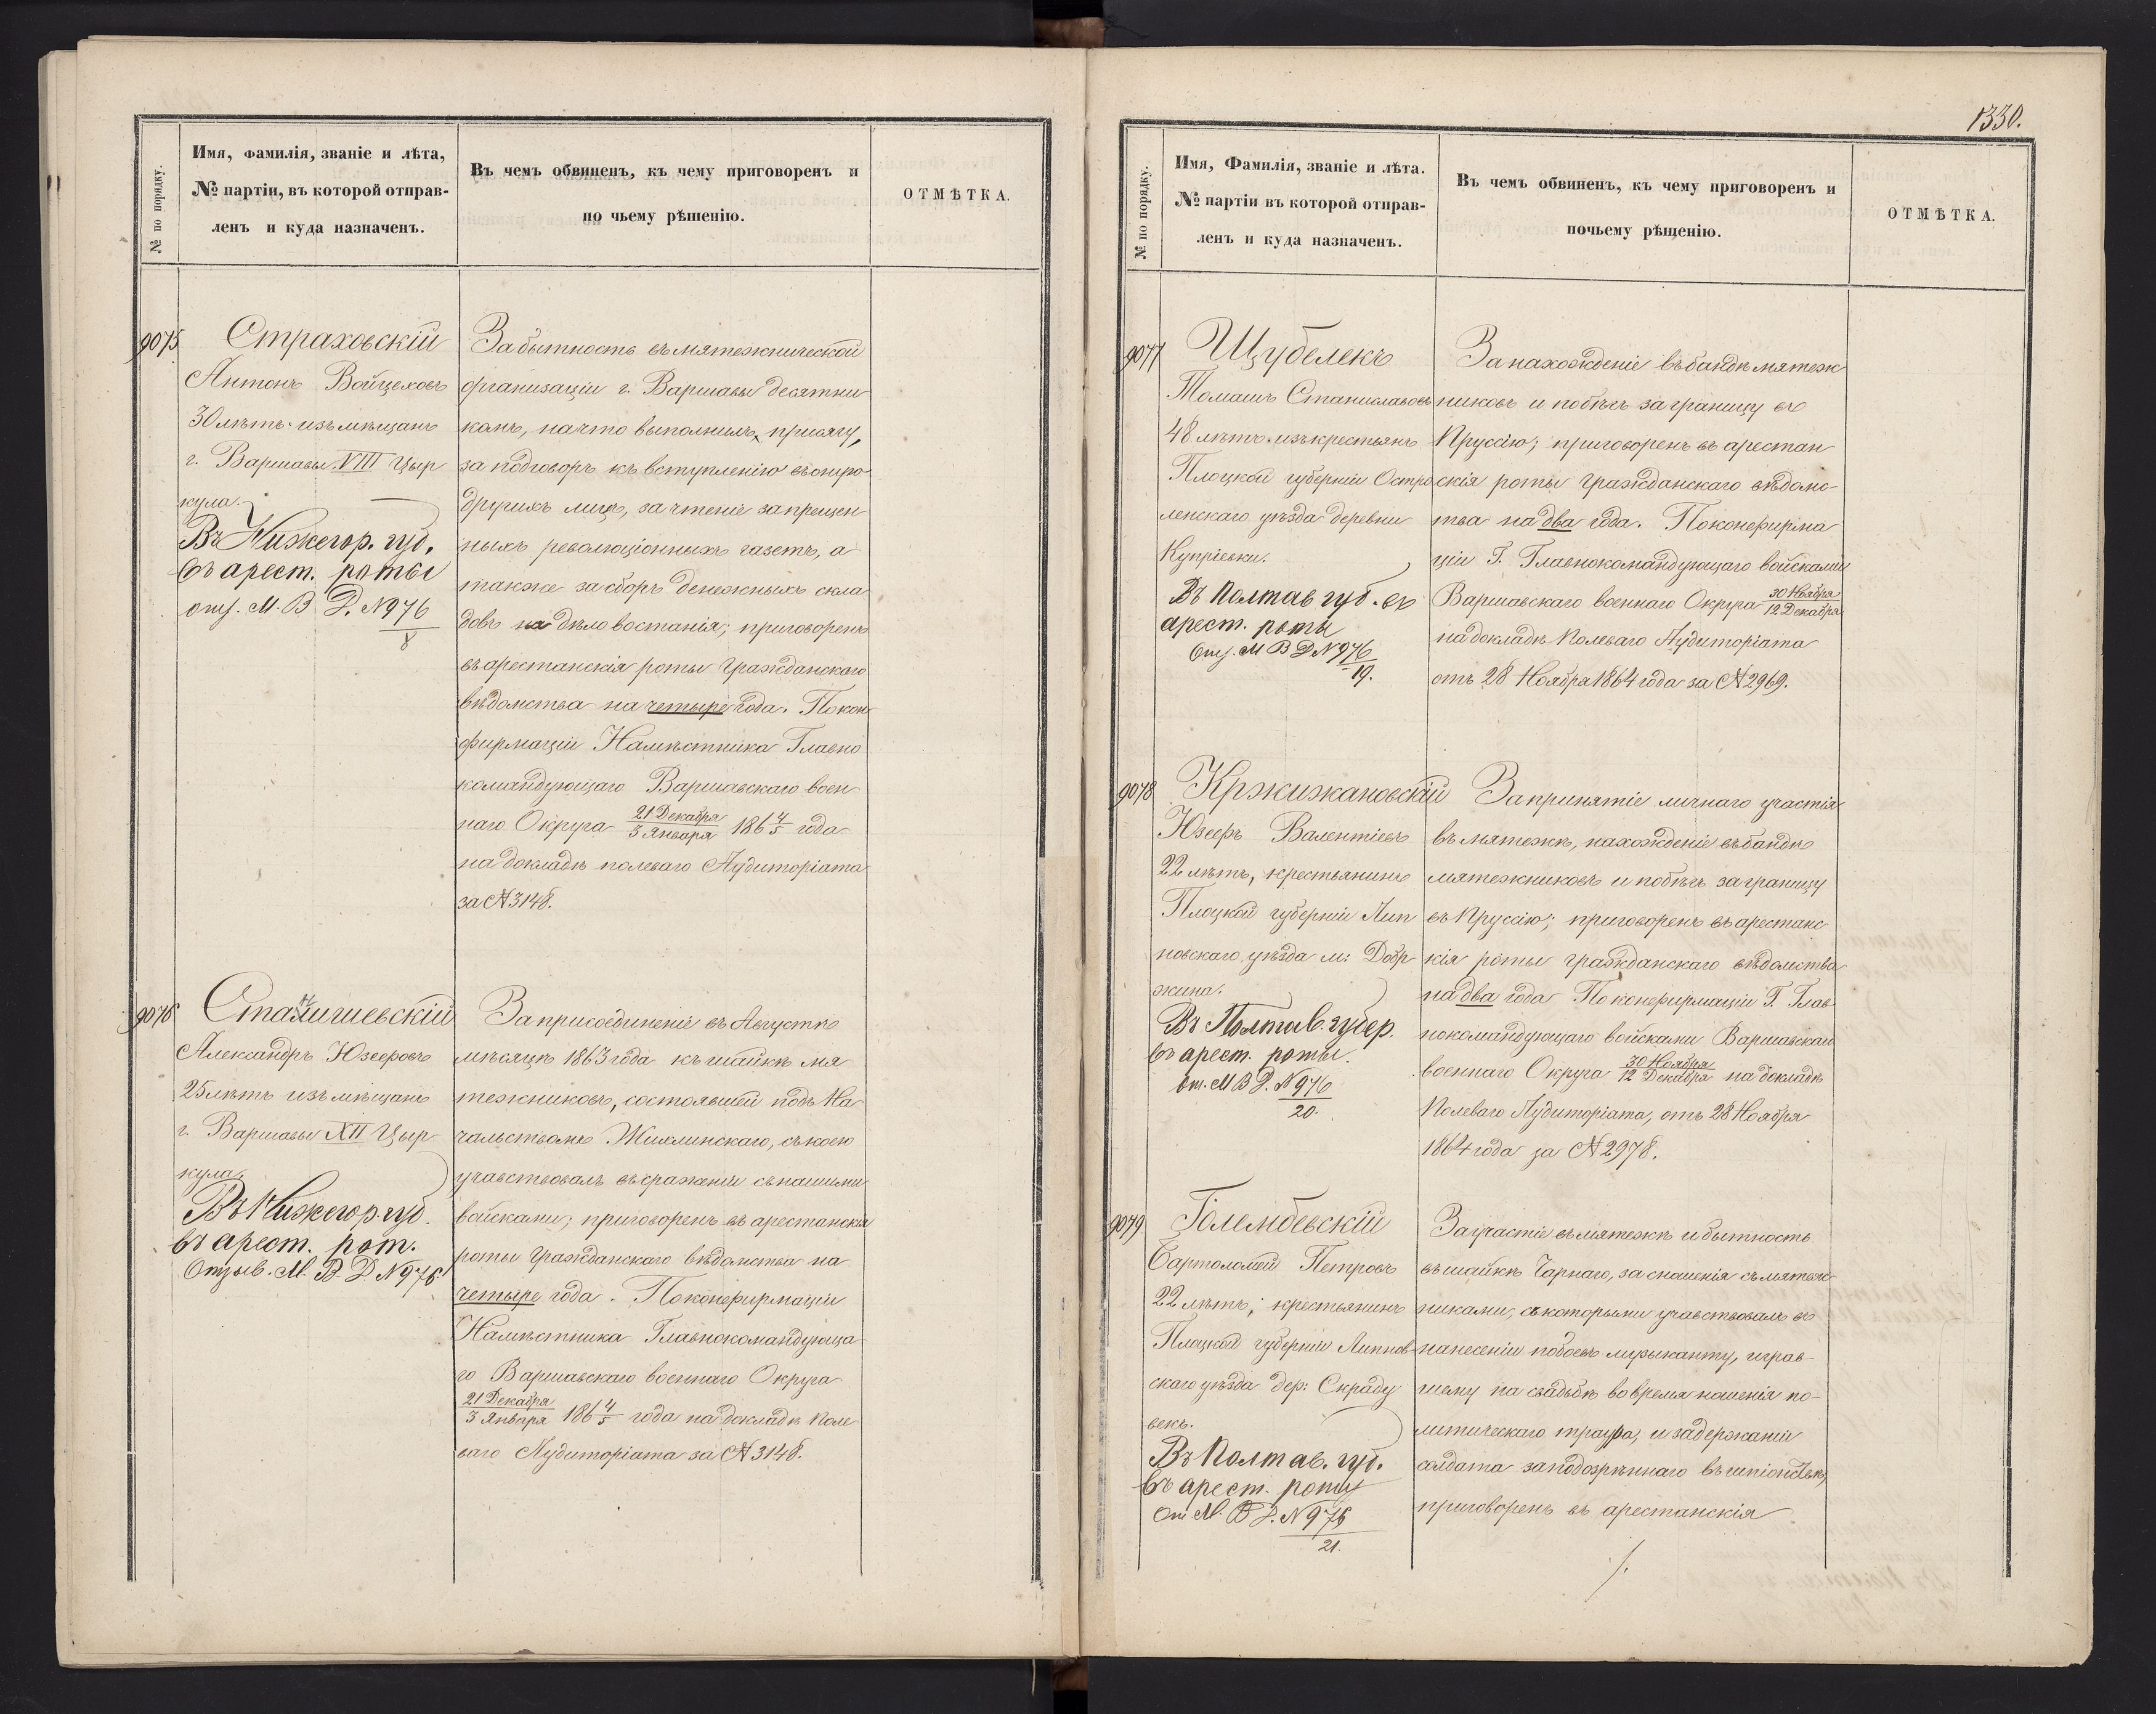 № по порядку.
Имя, фамилія, званіе и лѣта,
№ партіи, въ которой отправ-
ленъ и куда назначенъ.
Въ чемъ обвиненъ, къ чему приговоренъ и
по чьему рѣшенію.
ОТМѢТКА.
9075
Страховскій
Антонъ Войцеховъ
30 лѣтъ изъ мѣщанъ
г. Варшавы VIII Цыр
кула.
Въ Нижегор. губ.
въ арест. роты
отз. М. В. Д. № 976
8
За бытность въ мятежнической
организаціи г. Варшавы десятни
комъ, на что выполнилъ присягу,
за подговоръ къ вступленію въ оную
другихъ лицъ, за чтеніе запрещен
ныхъ революціонныхъ газетъ, а
также за сборъ денежныхъ скла
довъ на дѣло востанія; приговоренъ
въ арестанскія роты гражданскаго
вѣдомства на четыре года. По кон
фирмаціи Намѣстника Главно
командующаго Варшавскаго воен
наго Округа 21 Декабря / 3 Января 186 4/5 года
на докладѣ полеваго Аудиторіата
за № 3148.
9076
Станишевскій
Александръ Юзефовъ
25 лѣтъ изъ мѣщанъ
г. Варшавы XII Цыр
кула.
Въ Нижегор. губ.
въ арест. рот.
Отзыв. М. В. Д № 976
За присоединеніе въ Августѣ
мѣсяцѣ 1863 года къ шайкѣ мя
тежниковъ, состоявшей подъ На
чальствомъ Жихлинскаго, съ коею
учавствовалъ въ сраженіи съ нашими
войсками; приговоренъ въ арестанскія
роты гражданскаго вѣдомства на
четыре года. По конфирмаціи
Намѣстника Главнокомандующа
го Варшавскаго военнаго Округа
21 Декабря / 3 Января 186 4/5 года на докладѣ Поле
ваго Аудиторіата за № 3148.
1330.
№ по порядку.
Имя, Фамилія, званіе и лѣта.
№ партіи въ которой отправ-
ленъ и куда назначенъ.
Въ чемъ обвиненъ, къ чему приговоренъ и
почьему рѣшенію.
ОТМѢТКА.
9077
Щубелекъ
Томашъ Станиславовъ
48 лѣтъ изъ крестьянъ
Плоцкой губерніи Остро
ленскаго уѣзда деревни
Купріевки.
Въ Полтав губ. въ
арест. роты
Отз. М В Д № 976
19.
За нахожденіе въ бандѣ мятеж
никовъ и побѣгъ за границу въ
Пруссію; приговоренъ въ арестан
скія роты гражданскаго вѣдомс-
тва на два года. По конфирма
ціи Г. Главнокомандующаго войсками
Варшавскаго военнаго Округа 30 Ноября / 12 Декабря
на докладѣ Полеваго Аудиторіата
отъ 28 Ноября 1864 года за № 2969.
9078
Кржижановскій
Юзефъ Валентіевъ
22 лѣтъ, крестьянинъ
Плоцкой губерніи Лип
новскаго уѣзда м: Добр
жина.
Въ Полтав. губер.
въ арест. роты.
От. М В Д. № 976
20.
За принятіе личнаго участія
въ мятежѣ, нахожденіе въ бандѣ
мятежниковъ и побѣгъ за границу
въ Пруссію; приговоренъ въ арестанс
кія роты гражданскаго вѣдомства
на два года По конфирмаціи Г. Глав
нокомандующаго войсками Варшавскаго
военнаго Округа 30 Ноября / 12 Декабря на докладѣ
Полеваго Аудиторіата, отъ 28 Ноября
1864 года за № 2978.
9079
Голембевскій
Бартоломей Петровъ
22 лѣтъ; крестьянинъ
Плоцкой губерніи Липнов-
скаго уѣзда дер: Скраду
векъ.
Въ Полтав. губ.
въ арест. роты
От М. В Д. № 976
21.
За участіе въ мятежѣ и бытность
въ шайкѣ Чарнаго, за сношенія съ мятеж-
никами, съ которыми учавствовалъ въ
нанесеніи побоевъ музыканту, играв-
шему на свадьбѣ во время ношенія по-
литическаго траура, и задержаніи
солдата заподозрѣннаго въ шпіонствѣ,
приговоренъ въ арестанскія
./.